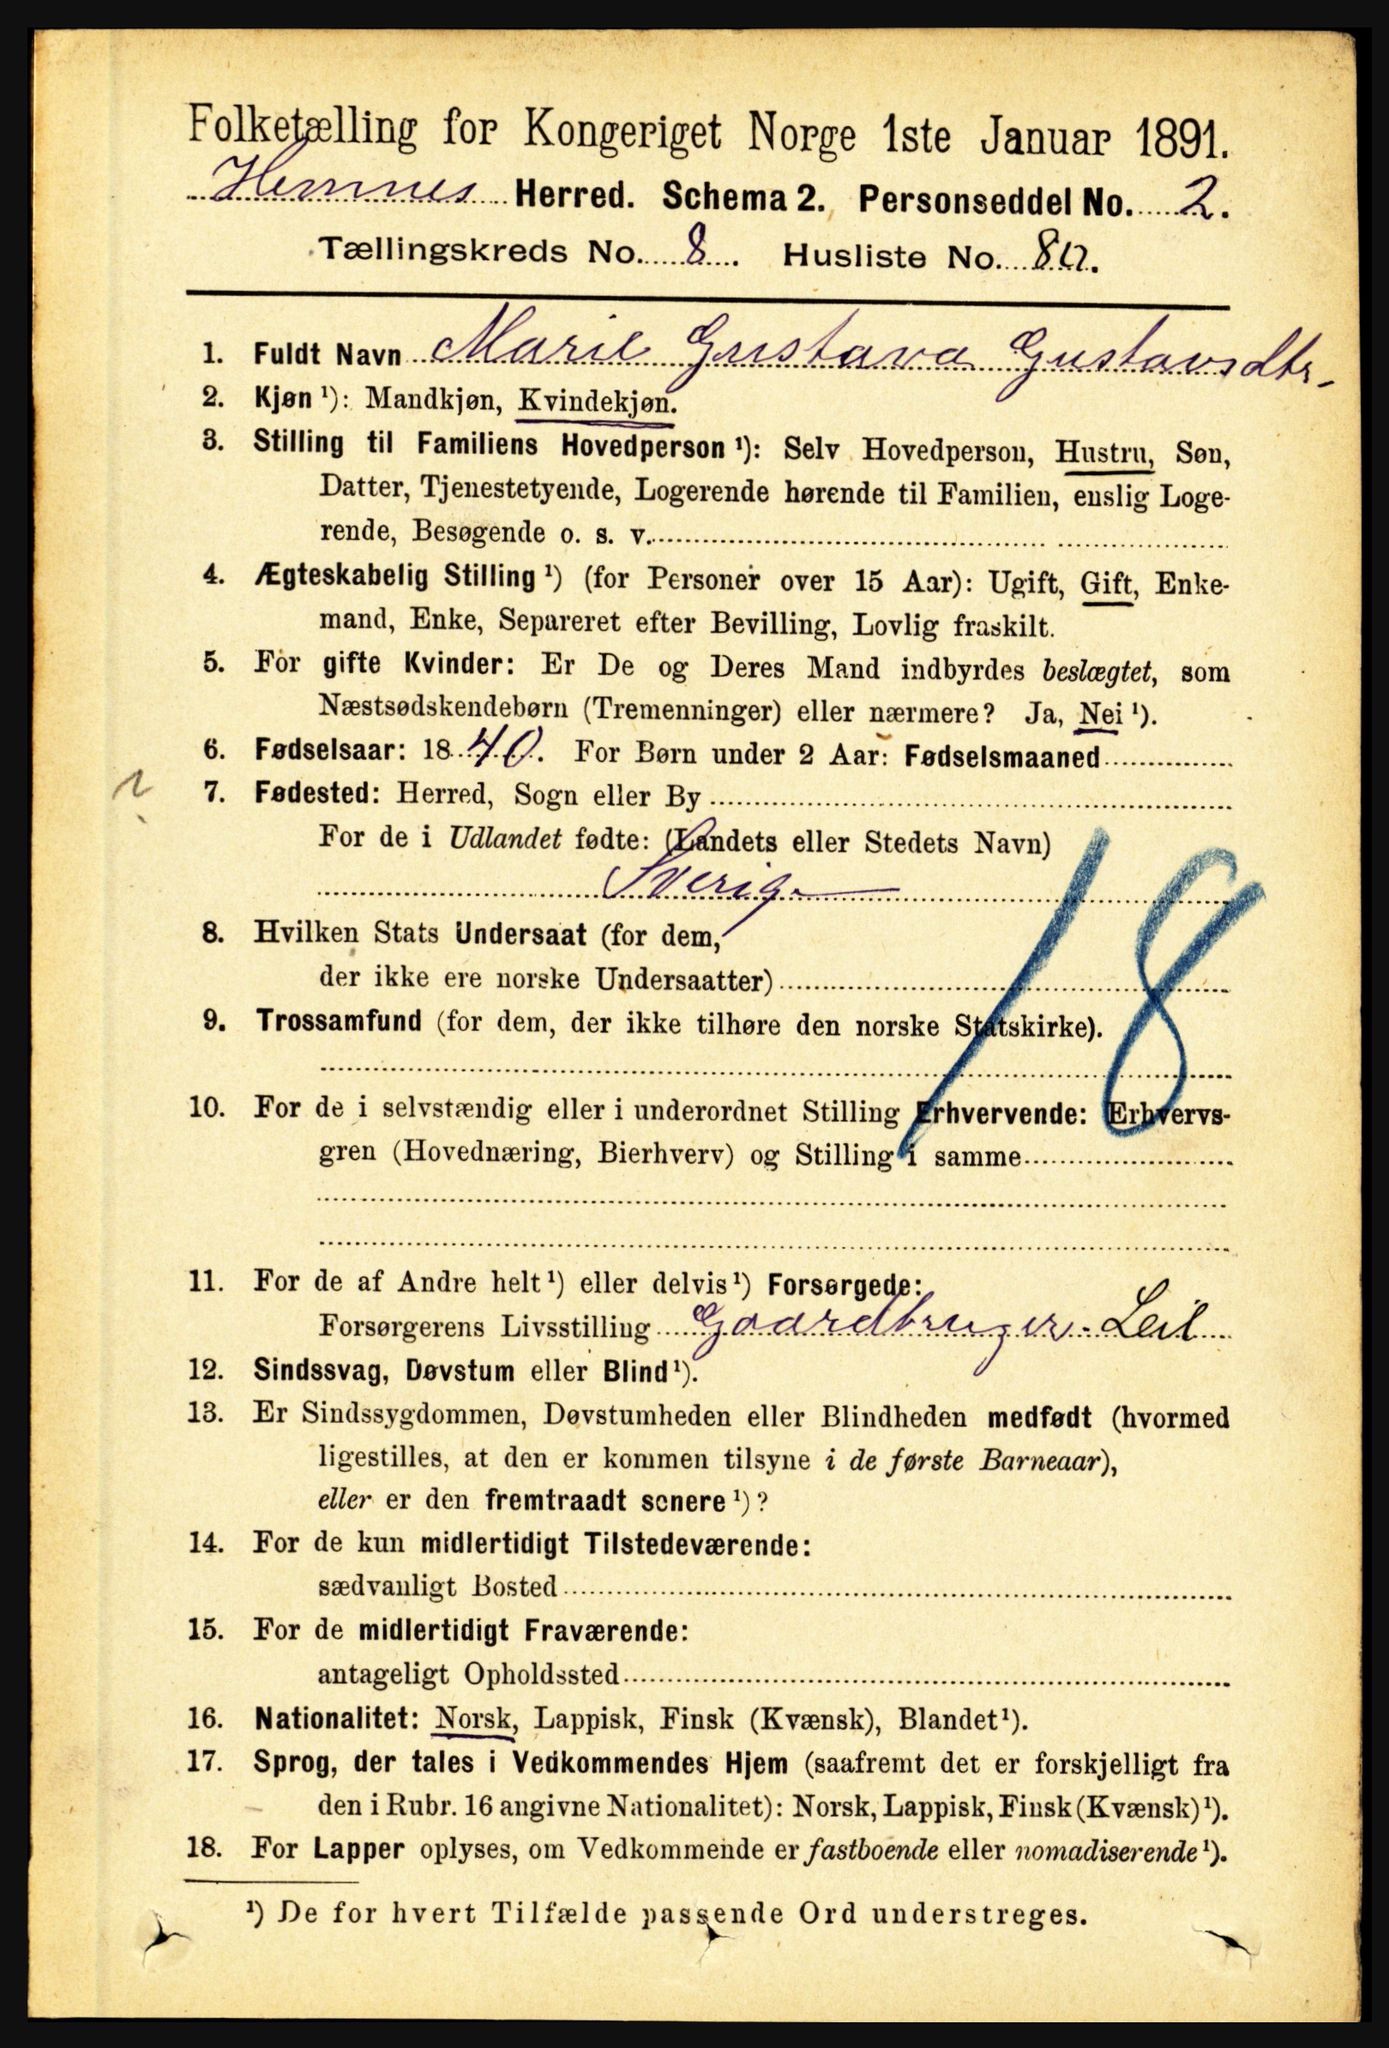 Folketælling for Kongeriget Norge 1ste Januar 1891.
Hemnes Herred. Schema 2. Personseddel No. 2.
Tællingskreds No. 8. Husliste No. 80.
1. Fuldt Navn Marie Gustava Gustavsdtr.
2. Kjøn ¹): Mandkjøn, Kvindekjøn.
3. Stilling til Familiens Hovedperson ¹): Selv Hovedperson, Hustru, Søn,
Datter, Tjenestetyende, Logerende hørende til Familien, enslig Loge-
rende, Besøgende o. s. v.
4. Ægteskabelig Stilling ¹) (for Personer over 15 Aar): Ugift, Gift, Enke-
mand, Enke, Separeret efter Bevilling, Lovlig fraskilt.
5. For gifte Kvinder: Er De og Deres Mand indbyrdes beslægtet, som
Næstsødskendebørn (Tremenninger) eller nærmere? Ja, Nei ¹).
6. Fødselsaar: 1840. For Børn under 2 Aar: Fødselsmaaned
7. Fødested: Herred, Sogn eller By
For de i Udlandet fødte: (Landets eller Stedets Navn)
Sverig
8. Hvilken Stats Undersaat (for dem,
der ikke ere norske Undersaatter)
18
9. Trossamfund (for dem, der ikke tilhøre den norske Statskirke).
10. For de i selvstændig eller i underordnet Stilling Erhvervende: Erhvervs-
gren (Hovednæring, Bierhverv) og Stilling i samme
11. For de af Andre helt ¹) eller delvis ¹) Forsørgede:
Forsørgerens Livsstilling Gaardbruger. Leil
12. Sindssvag, Døvstum eller Blind ¹).
13. Er Sindssygdommen, Døvstumheden eller Blindheden medfødt (hvormed
ligestilles, at den er kommen tilsyne i de første Barneaar),
eller er den fremtraadt senere ¹)?
14. For de kun midlertidigt Tilstedeværende:
sædvanligt Bosted
15. For de midlertidigt Fraværende:
antageligt Opholdssted
16. Nationalitet: Norsk, Lappisk, Finsk (Kvænsk), Blandet ¹).
17. Sprog, der tales i Vedkommendes Hjem (saafremt det er forskjelligt fra
den i Rubr. 16 angivne Nationalitet): Norsk, Lappisk, Finsk (Kvænsk) ¹).
18. For Lapper oplyses, om Vedkommende er fastboende eller nomadiserende ¹).
¹) De for hvert Tilfælde passende Ord understreges.